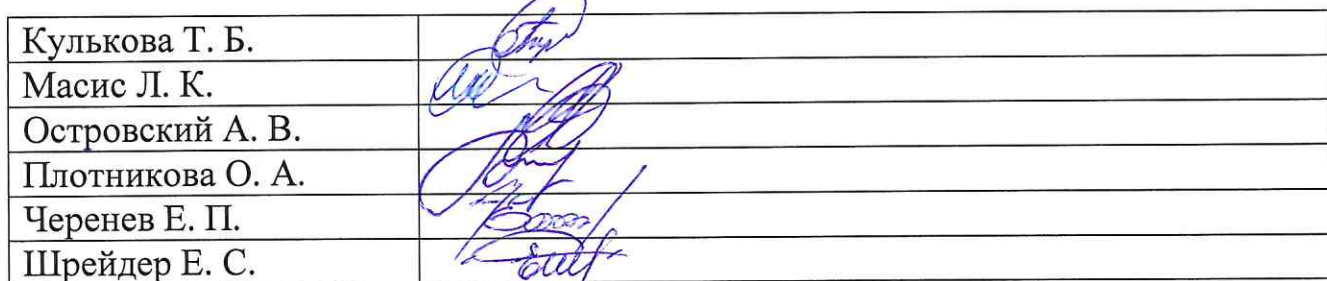 Кулькова Т. Б.
Масис Л. К.
Островский А. В.
Плотникова О. А.
Черенев Е. П.
Шрейдер Е. С.